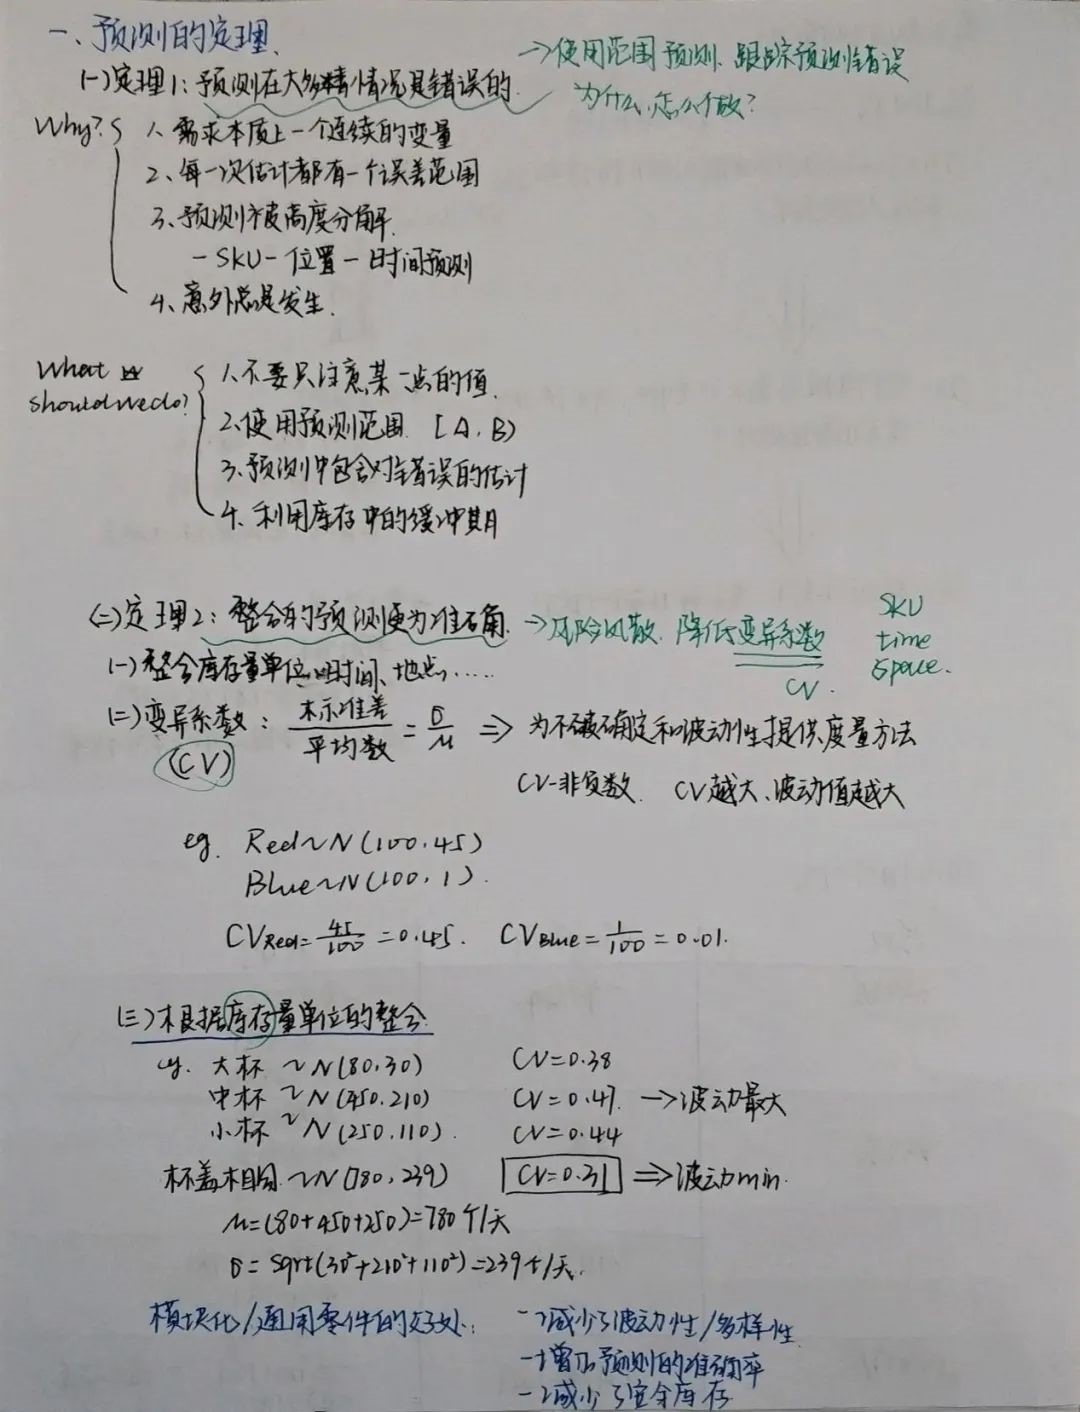 一、预测的定理.
(一)定理1:预测在大多数情况是错误的. →使用范围预测、跟踪预测错误
为什么,怎么做?
Why? 1、需求本质上一个连续的变量
2、每一次估计都有一个误差范围
3、预测被高度分解.
-SKU-位置-时间预测
4、意外总是发生.
What
should we do? 1、不要只注意某一点的值.
2、使用预测范围. [A,B)
3、预测中包含对错误的估计
4、利用库存中的缓冲期
(二)定理2:整合的预测更为准确. →风险分散、降低变异系数
CV.
SKU
time
space.
(一)整合库存量单位、时间、地点.....
(二)变异系数: 标准差/平均数 = σ/μ ⇒ 为不确定和波动性提供度量方法
(CV)
CV-非负数. CV越大、波动值越大
eg. Red~N(100,45)
Blue~N(100,1).
CVRed=45/100=0.45. CVBlue=1/100=0.01.
(三)根据库存量单位的整合.
eg. 大杯 ~N(80,30) CV=0.38
中杯 ~N(450,210) CV=0.47. →波动最大
小杯 ~N(250,110). CV=0.44
杯盖相同.~N(780,239) CV=0.31 ⇒波动min.
μ=(80+450+250)=780个/天
σ=sqrt(30²+210²+110²)=239个/天.
模块化/通用零件的好处: →减少了波动性/多样性
→增加预测的准确率
→减少了安全库存